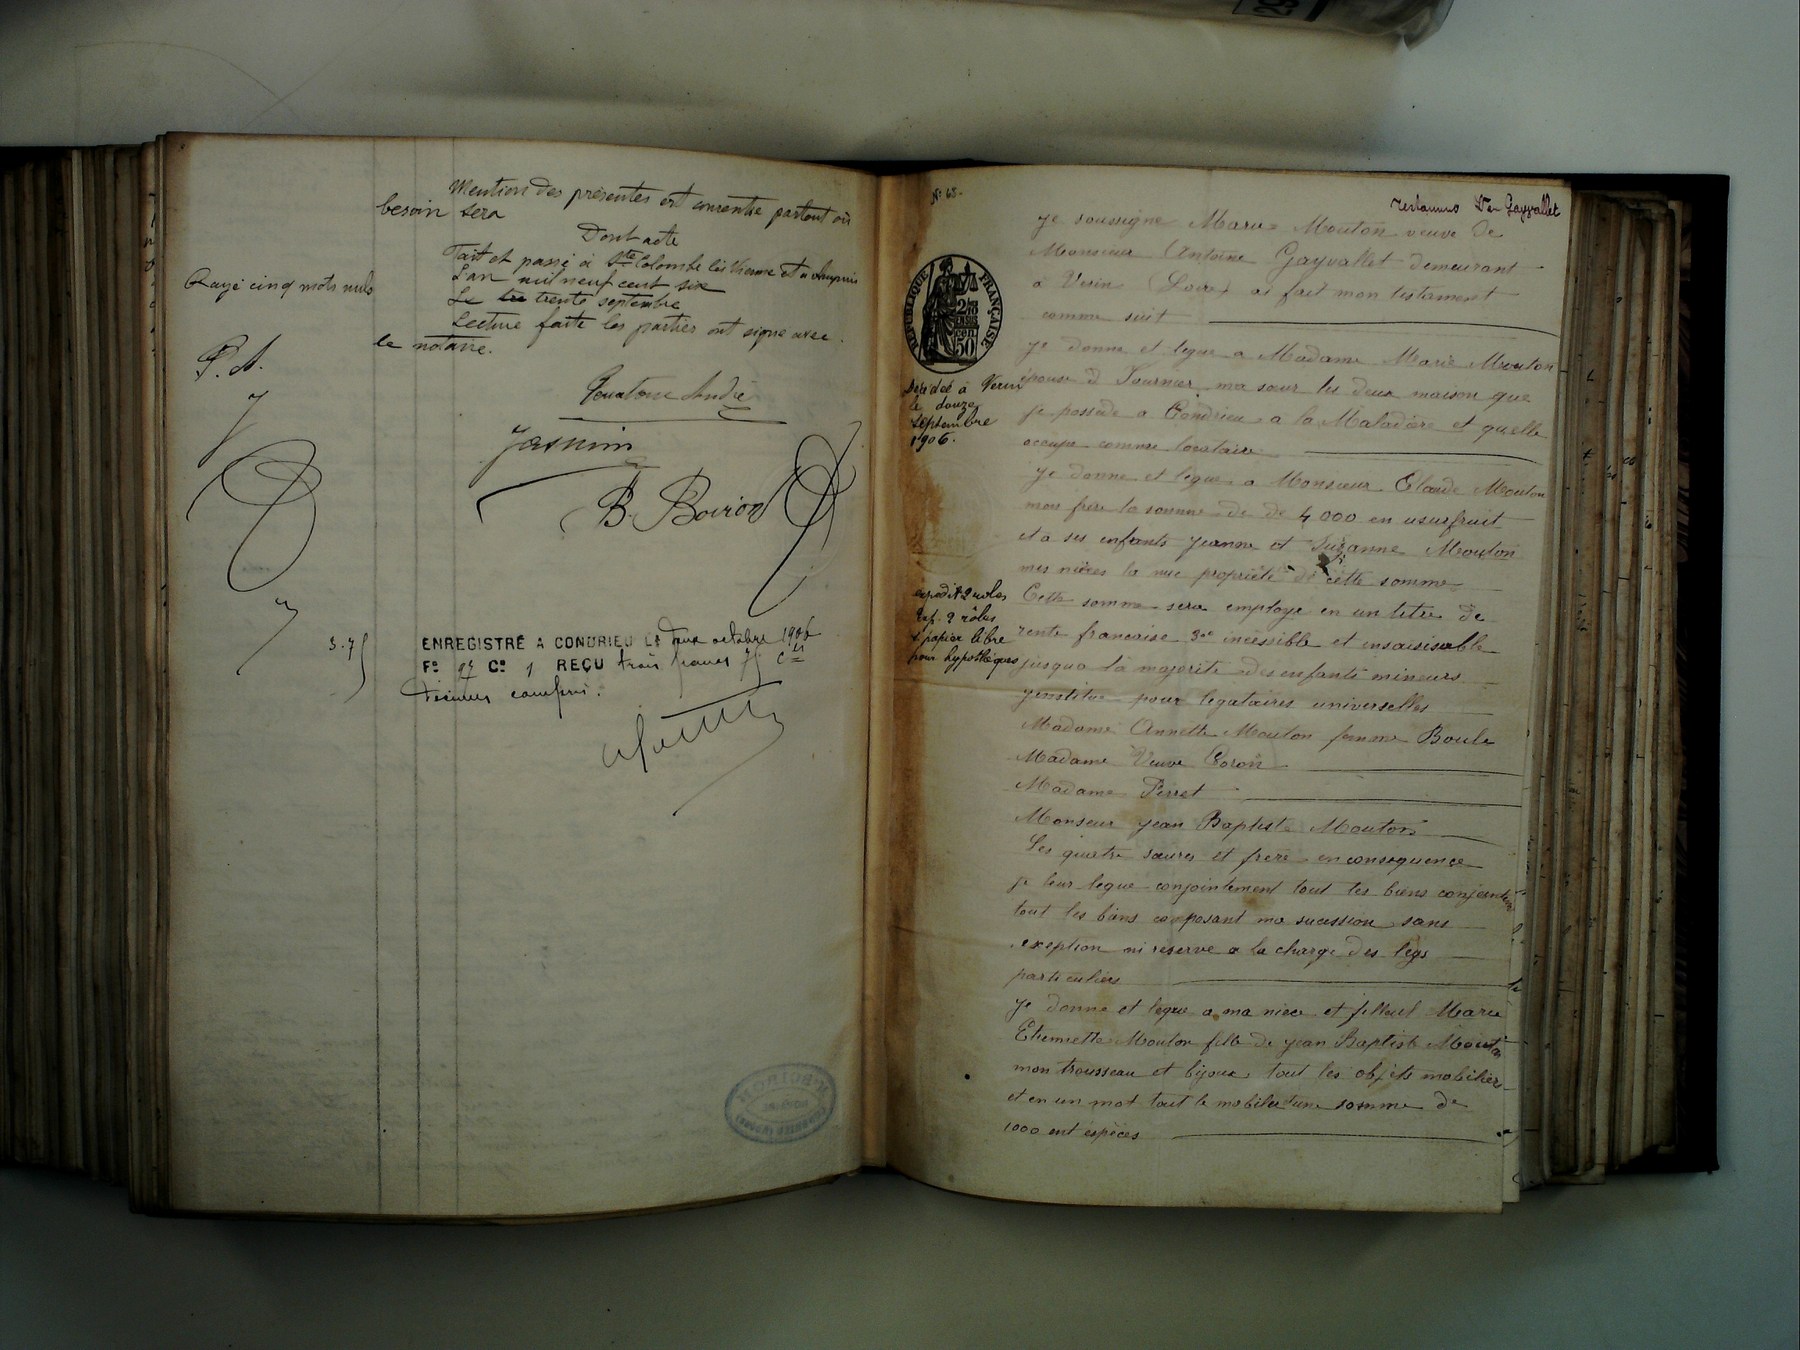 Mention des présentes est consentie partout où
besoin sera
Dont acte
Fait et passé à Ste Colombe lès Vienne et à Ampuis
L'an mil neuf cent six
Le trente septembre
Lecture faite les parties ont signé avec
le notaire.
Rayé cinq mots nuls
P. A.
J
André
Jasmin
B. Boiron
3.75
ENREGISTRÉ A CONDRIEU LE deux octobre 1906
F° 97 C° 1 REÇU trois francs 75 cts
Décimes compris.
N° 68.
Testament Ve Gayvallet
RÉPUBLIQUE FRANÇAISE
2/10
EN SUS
50 cen
Décédée à Verin
le douze
septembre
1906.
expédit 2 roles
Exp. 2 rôles
s papier libre
pour hypothèques
je soussigné Marie Mouton veuve de
Monsieur Antoine Gayvallet demeurant
a Verin (Loire) ai fait mon testament
comme suit
je donne et legue a Madame Marie Mouton
épouse d Fournier ma sœur les deux maison que
je possède a Condrieu a la Maladière et quelle
occupe comme locataire
je donne et legue a Monsieur Claude Mouton
mon frère la somme de de 4000 en usufruit
et a ses enfants jeanne et Suzanne Mouton
mes nièces la nue propriété de cette somme
Cette somme sera employe en un titre de
rente francaise 3% incessible et insaisisable
jusqua la majorité des enfants mineurs
jinstitue pour legataires universelles
Madame Annette Mouton femme Boule
Madame Veuve Coron
Madame Perret
Monseur jean Baptiste Mouton
Les quatre sœures et frère en consequence
je leur legue conjointement tout les biens conjointem
tout les biens composant ma sucession sans
exeption ni reserve a la charge des legs
particuliers
je donne et legue a ma niece et filleul Marie
Etiennette Mouton fille de jean Baptiste Mouton
mon trousseau et bijoux tout les objets mobiliers
et en un mot tout le mobilier une somme de
1000 ent espèces